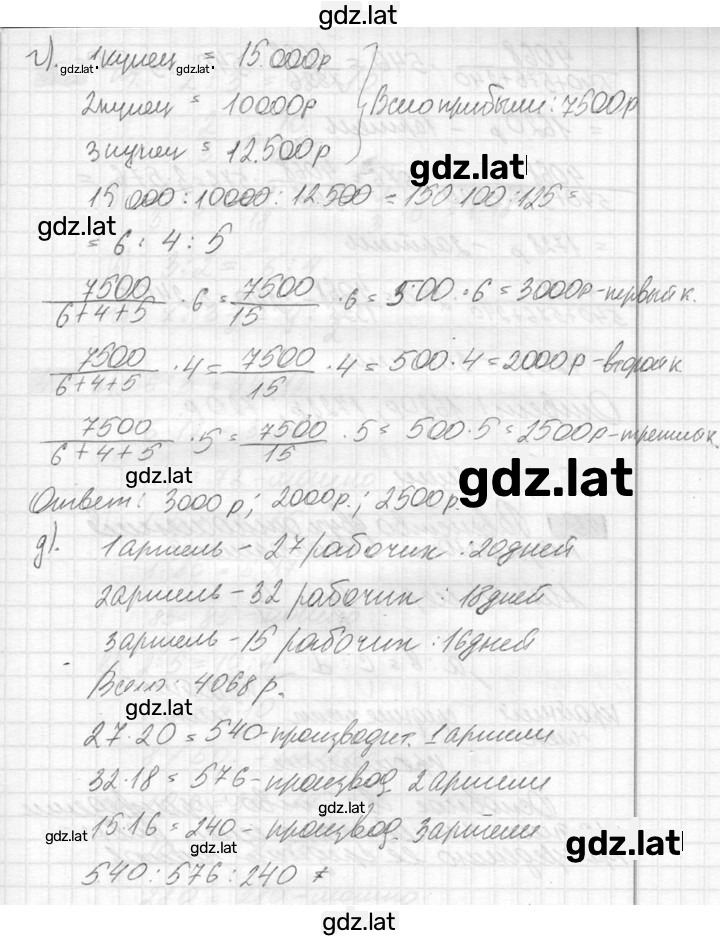 gdz.lat
г). 1купец = 15.000р
gdz.lat gdz.lat
2купец = 10000р Всего прибыли: 7500р
3купец = 12.500р
gdz.lat
15 000 : 10000 : 12.500 = 150:100:125 =
gdz.lat
= 6 : 4 : 5
7500/(6+4+5) · 6 = 7500/15 · 6 = 500 · 6 = 3000р - первый к.
7500/(6+4+5) · 4 = 7500/15 · 4 = 500 · 4 = 2000р - второй к
7500/(6+4+5) · 5 = 7500/15 · 5 = 500 · 5 = 2500р - третий к.
gdz.lat
Ответ: 3000 р; 2000р.; 2500р.
д). 1 артель - 27 рабочих : 20дней
2артель - 32 рабочих : 18дней
3артель - 15 рабочих : 16дней
Всего: 4068 р.
gdz.lat
27·20 = 540 - производит. 1 артели
32·18 = 576 - производ. 2 артели
gdz.lat
15·16 = 240 - производ. 3 артели
gdz.lat gdz.lat gdz.lat
540 : 576 : 240 =
gdz.lat